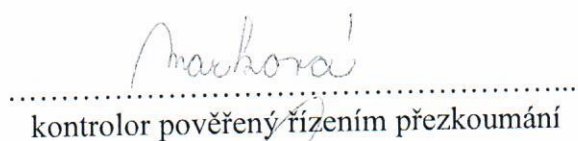 Marková
kontrolor pověřený řízením přezkoumání